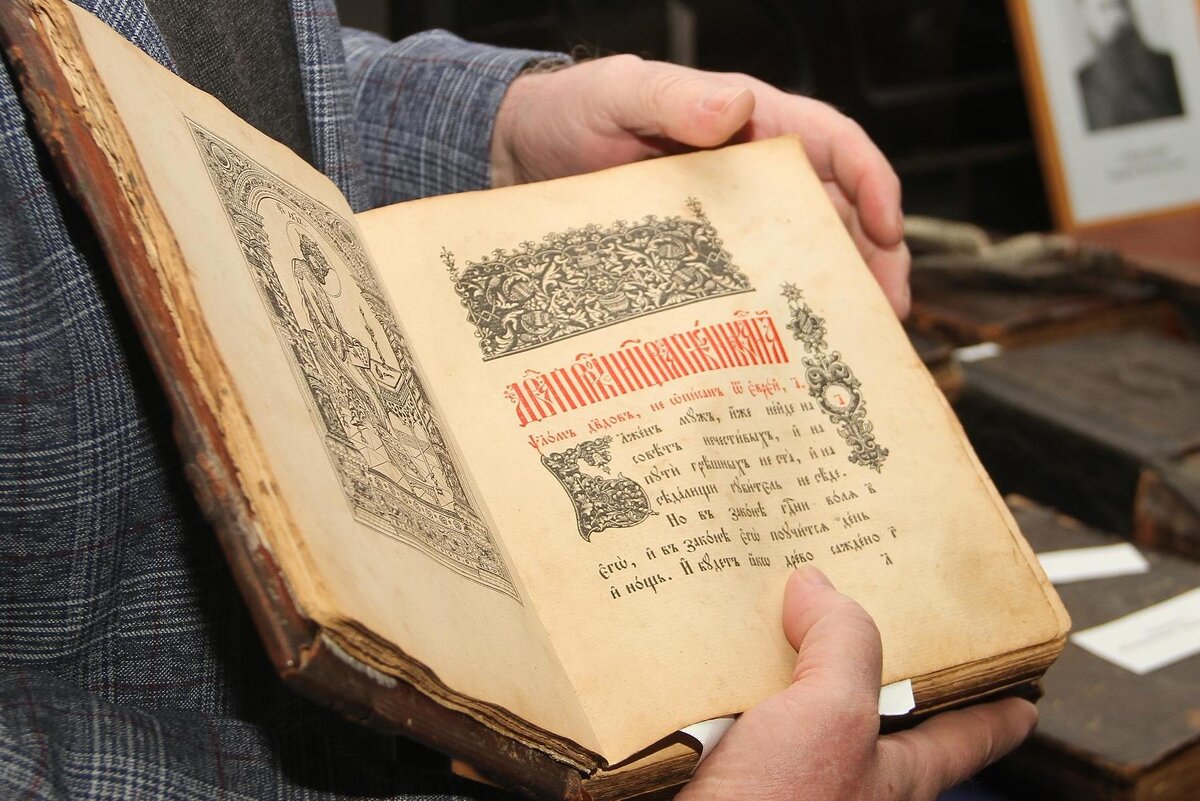 ѱло́мъ дв҃довъ, не ѡ҆пи́санъ ѿ є҆врє́й, а҃.
а҃
Блаже́нъ му́жъ, и҆́же не и́де на
совѣ́тъ нечести́выхъ, и҆ на
пути́ грѣ́шныхъ не ста̀, и҆ на
сѣда́лищи губи́тель не сѣ́де.
Но въ зако́нѣ гдⷭ҇ни во́лѧ в҃
є҆гѡ̀, и҆ въ зако́нѣ є҆гѡ̀ поучи́тсѧ де́нь
и҆ но́щь. И҆ бу́детъ ꙗ҆́кѡ дре́во сажде́но г҃